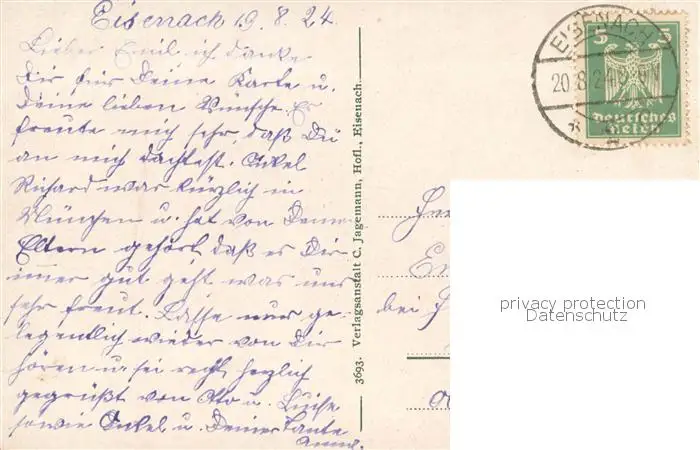 Eisenach 19.8.24.
Lieber Emil ich danke
Dir für Deine Karte u.
Deine lieben Wünsche. Es
freute mich sehr, daß Du
an mich dachtest. Onkel
Richard war kürzlich in
München u. hat von Deinen
Eltern gehört daß es Dir
immer gut geht was uns
sehr freut. Lasse nur ge-
legentlich wieder von Dir
hören u. sei recht herzlich
gegrüßt von Otto u. Luise
sowie Onkel u. Deiner Tante
Anna.
3693. Verlagsanstalt C. Jagemann, Hofl., Eisenach.
EISENACH
20.8.24
5 5
Deutsches
Reich
bei
privacy protection
Datenschutz